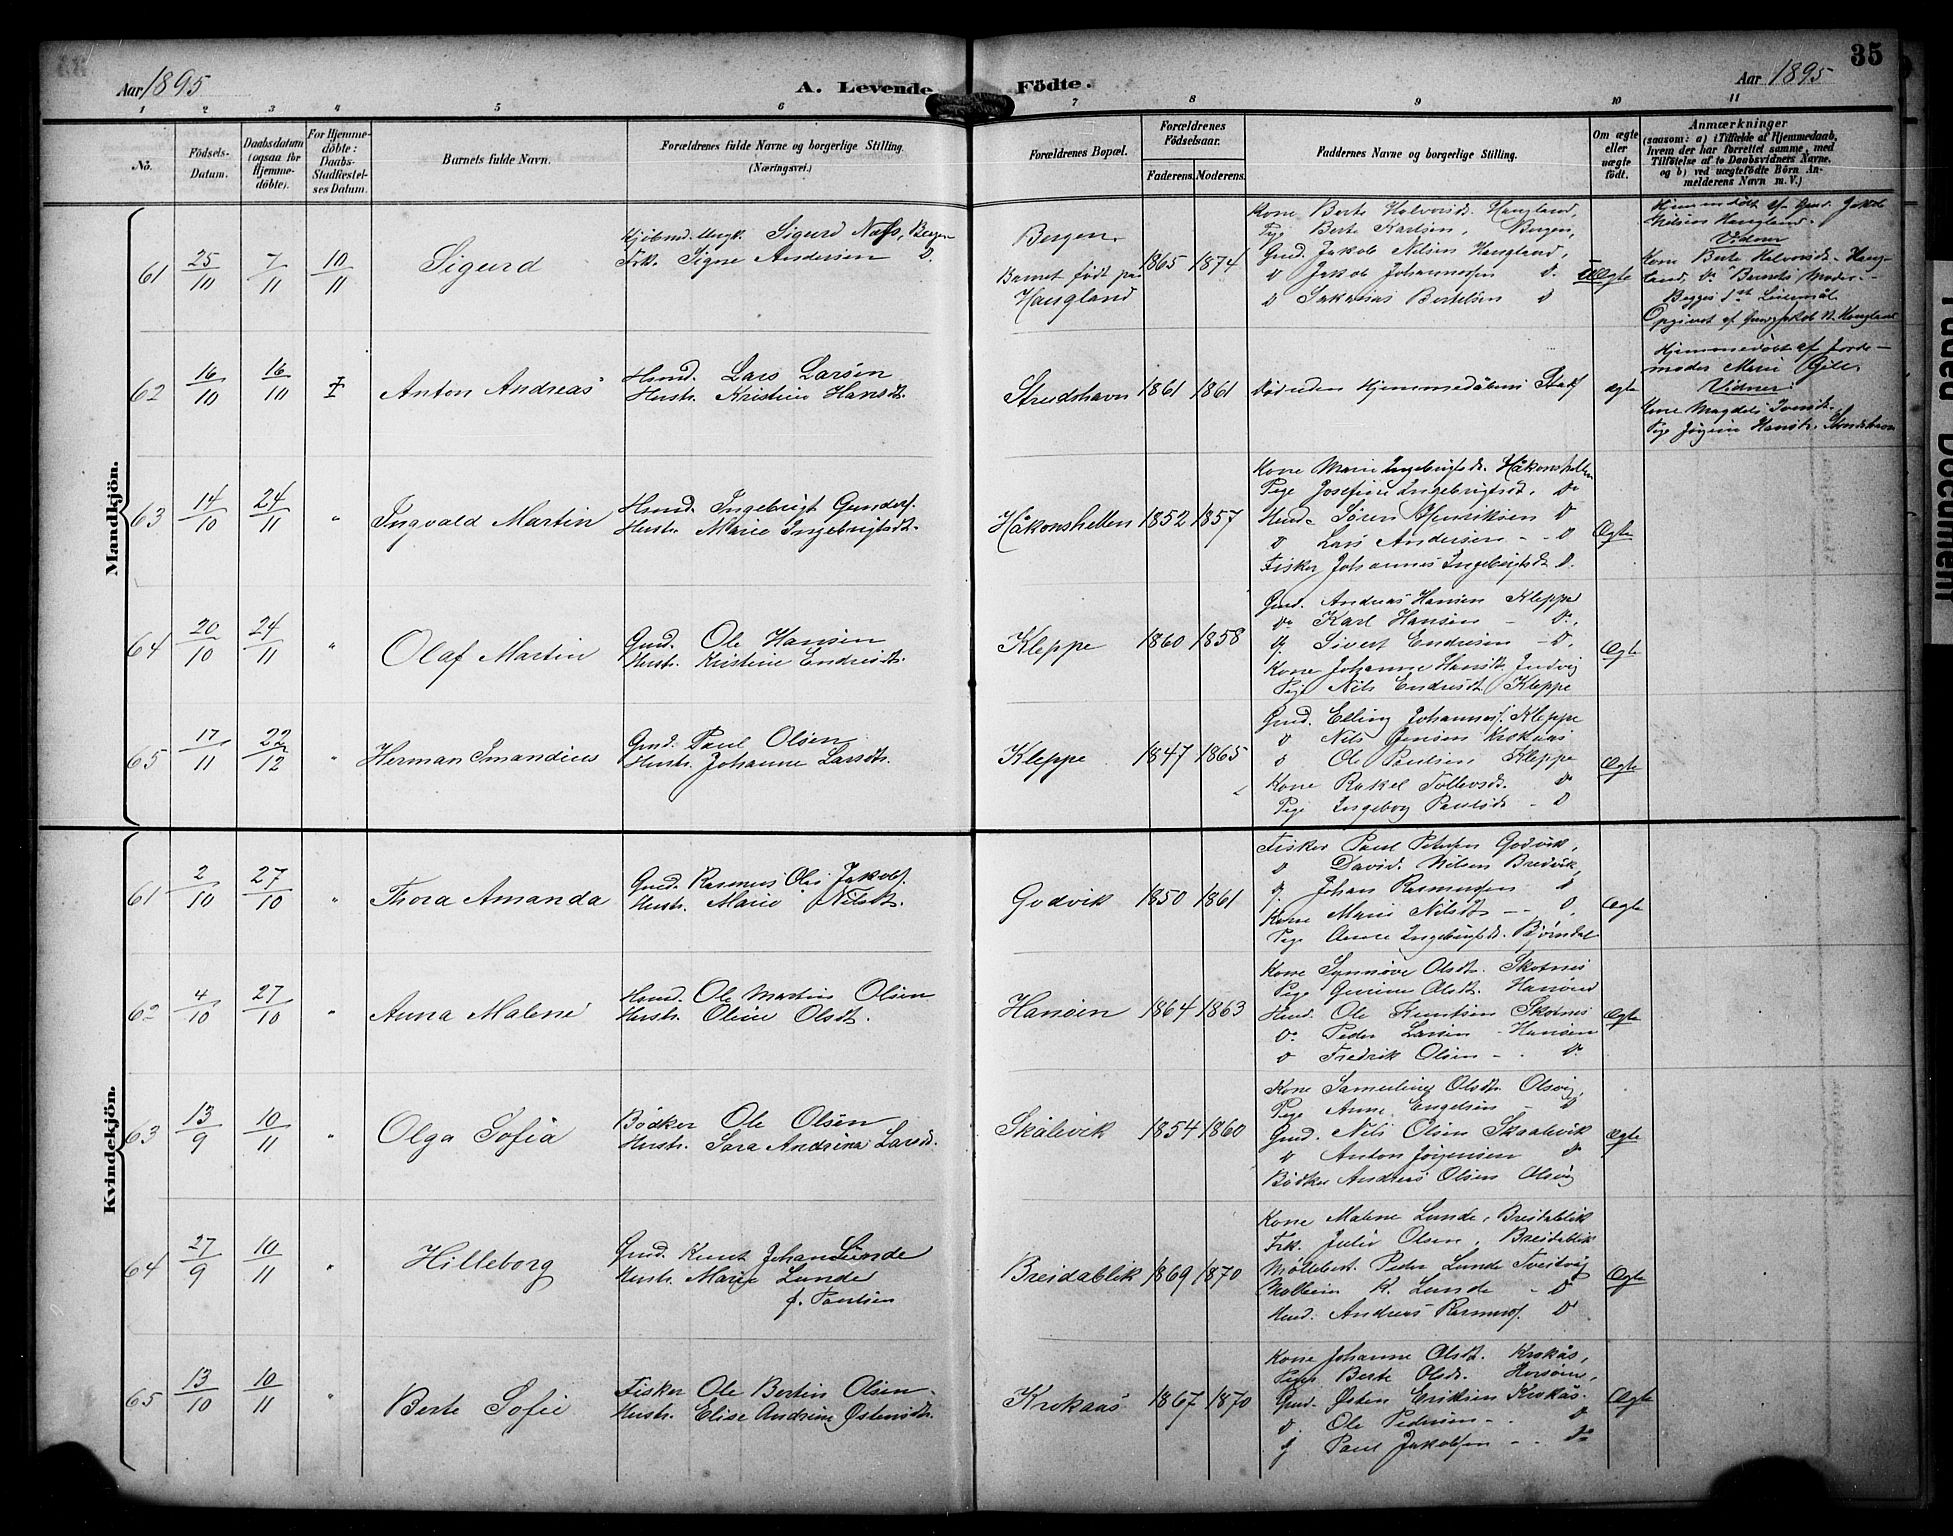 35
Aar 1895
A. Levende Födte.
Aar 1895
1 2 3 4 5 6 7 8 9 10 11
No.
Födsels-
Datum.
Daabsdatum
(ogsaa for
Hjemme-
döbte).
For Hjemme-
döbte:
Daabs-
Stadfæstel-
ses Datum.
Barnets fulde Navn.
Forældrenes fulde Navne og borgerlige Stilling.
(Næringsvei.)
Forældrenes Bopæl.
Forældrenes
Födselsaar.
Faderens. Moderens.
Faddernes Navne og borgerlige Stilling.
Om ægte
eller
uægte
født.
Anmærkninger
(saasom: a) i Tilfælde af Hjemmedaab,
hvem der har forrettet samme, med
Tilföielse af to Daabsvidners Navne,
og b) ved uægtefödte Börn An-
melderens Navn m. V.)
Mandkjön.
61 25/10 7/11 10/11 Sigurd
Sigurd Næss, Bergen
Frk. Signe Andersen D.
Bergen.
Barnet født på
Haugland
1865 1874
Kone Berte Halvorsdt. Haugland,
Pige Berte Karlsen, Bergen,
Gmd. Jakob Nilsen Haugland,
D Jakob Johannessen D.
D Sakarias Bertelsen D
Uægte
Hjemmedöbt af Gmd. Jakob
Nilsen Haugland.
Vidner
Kone Berte Halvorsdt. Haug-
land, Do Barnets Moder.-
Begges 1st Leiermål.
Opgivet af Gmd. Jakob N. Haugland
62 16/10 16/10 Anton Andreas
Husmd. Lars Larsen
Hustr. Kristine Hansdt.
Strudshavn 1861 1861
Död uden Hjemmedåbens Stadf
ægte
Hjemmedöbt af Jorde-
moder Marie Gjele.
Vidner:
Kone Magdele Iversdt.
Pige Jörgine Hansdt. Strudshavn
63 14/10 24/11 " Ingvald Martin
Husmd. Ingebrigt Gunders.
Hustr. Marie Ingebrigtsdt.
Håkonshellen 1852 1857
Kone Marie Ingebrigtsdt. Håkonshellen
Pige Josefine Ingebrigtsdt. Do
Husmd. Sören Henriksen D
D Lars Andersen - - D
Fisker Johannes Ingebrigtsdt D.
Ægte
64 20/10 24/11 " Olaf Martin
Gmd. Ole Hansen
Hustr. Kristine Endresdt.
Kleppe 1860 1858
Gmd. Andreas Hansen Kleppe
Do Karl Hansen - D.
Sivert Endresen - D.
Kone Johanne Hansdt.
Pige Nils Endresdt Kleppe
Ægte
65 17/11 22/12 " Herman Imandius
Gmd. Paul Olsen
Hustr. Johanne Larsdt.
Kleppe 1847 1865
Gmd. Elling Johanness. Kleppe
D Nils Jensen Krokaas
D Ole Paulsen Kleppe
Kone Rakel Tollevsdt. Do
Pige Ingeborg Paulsdt. - D
Ægte
Kvindekjön.
61 2/10 27/10 " Thora Amanda
Gmd. Rasmus Olai Jakobs.
Hustr. Marie Nilsdt.
Godvik 1850 1861
Fisker Paul Peters. Godvik,
D David Nilsen Bredvik,
Johan Rasmussen D
Kone Marie Nilsdt - - D.
Pige Anne Ingebrigtsdt. Bjørndal
Ægte
62 4/10 27/10 " Anna Malene
Husmd. Ole Martin Olsen
Hustr. Oline Olsdt.
Hanöen 1864 1863
Kone Synnöve Olsdt. Skotnes
Pige Gurine Olsdt. Hanöen
Husmd. Ole Knutsen Skotnes
Do Peder Larsen Hanöen
D Fredrik Olsen - . Do
Ægte
63 13/9 10/11 " Olga Sofia
Bödker Ole Olsen
Hustr. Sara Andrina Larsdt.
Skålevik 1854 1860
Kone Samueline Olsdt. Olsvig,
Pige Anne Engelsen - D
Gmd. Nils Olsen Skaalevik
D Anton Jörgensen D
Bödker Andreas Olsen Olsvig
Ægte
64 27/9 10/11 " Hilleborg
Gmd. Knut Johan Lunde
Hustr. Marie Lunde
f. Paulsen
Breidablik 1869 1870
Kone Malene Lunde, Breidablik
Frk. Julie Olsen, Breidablik
Møllebest. Peder Lunde Tveitvig
K. Lunde - D
Husmd. Andreas Rasmuss. Do
Ægte
65 13/10 10/11 " Berte Sofie
Fisker Ole Bertin Olsen
Hustr. Elise Andrine Østensdt.
Krokaas 1867 1870
Kone Johanne Olsdt. Krokås,
Pige Berte Olsdt.
Gmd. Østen Eriksen Krokås.
D. Ole Pedersen - . D
Paul Jakobsen - - Do
Ægte